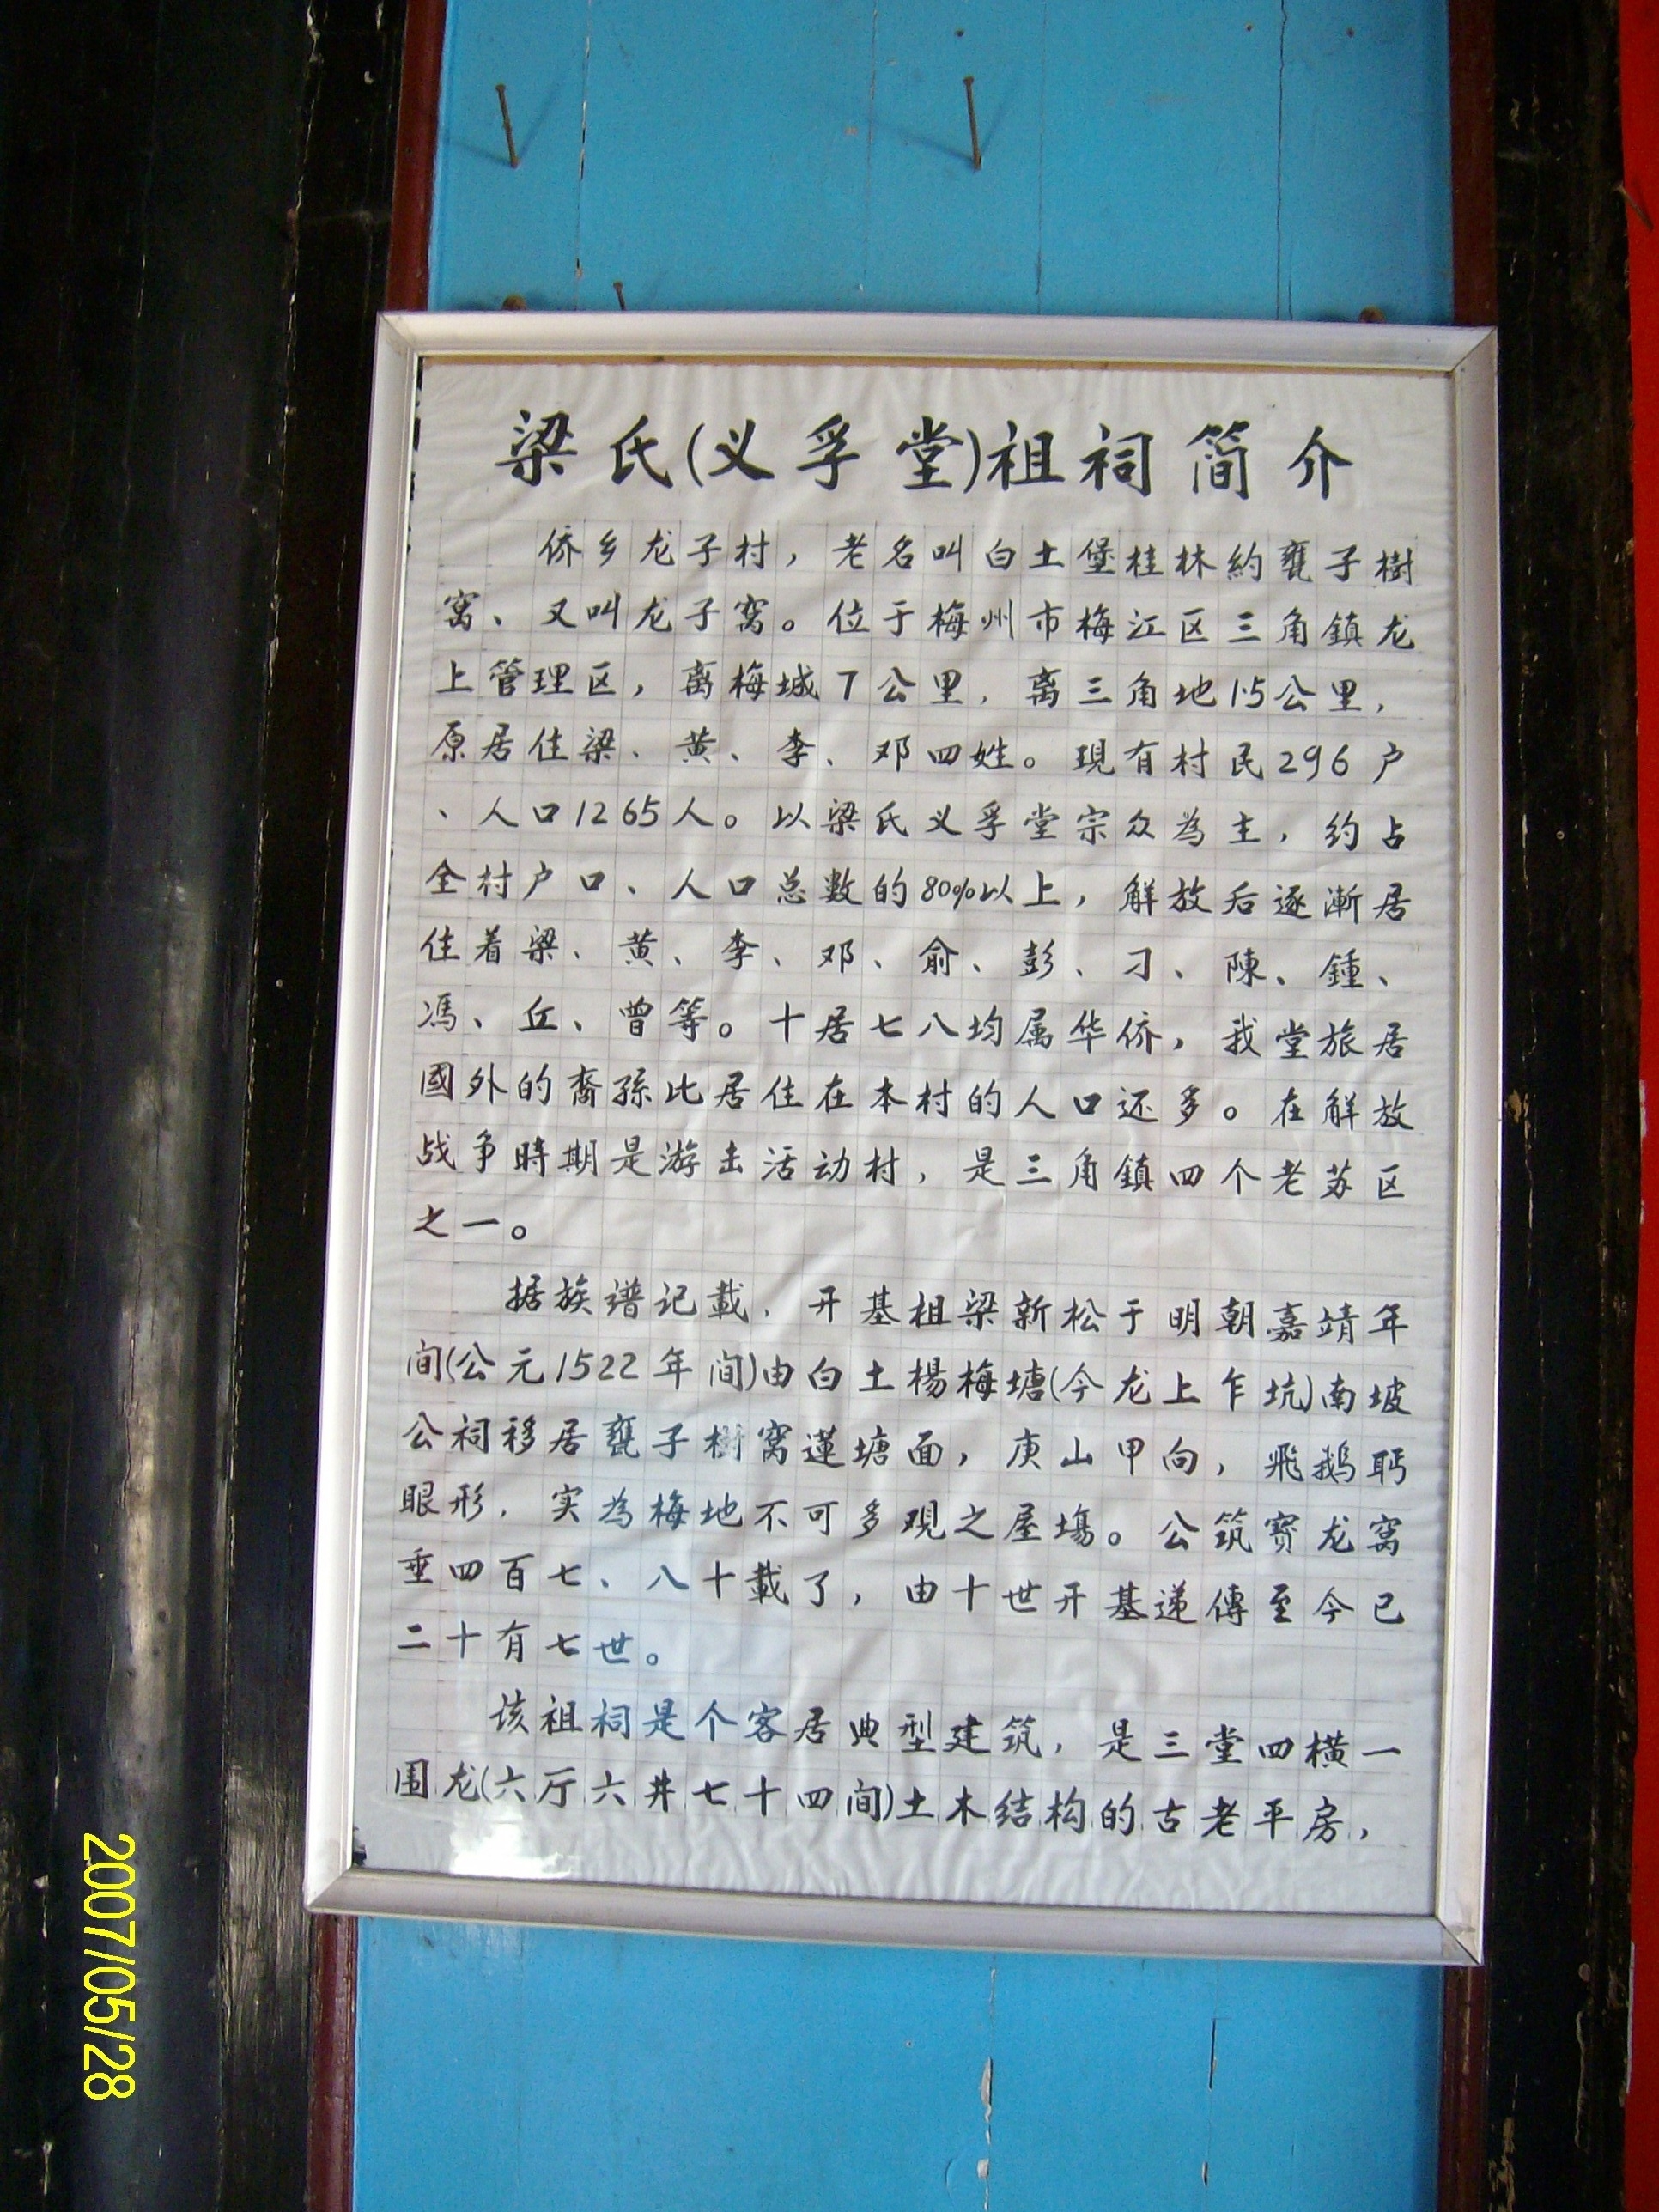 梁氏(义孚堂)祖祠简介
侨乡龙子村，老名叫白土堡桂林約甕子樹
窩、又叫龙子窝。位于梅州市梅江区三角鎮龙
上管理区，离梅城7公里，离三角地1.5公里，
原居住梁、黄、李、邓四姓。現有村民296户
、人口1265人。以梁氏义孚堂宗众為主，约占
全村户口、人口总数的80%以上，解放后逐漸居
住着梁、黄、李、邓、俞、彭、刁、陳、鍾、
馮、丘、曾等。十居七八均属华侨，我堂旅居
國外的裔孫比居住在本村的人口还多。在解放
战争時期是游击活动村，是三角鎮四个老苏区
之一。
据族谱记載，开基祖梁新松于明朝嘉靖年
间(公元1522年间)由白土楊梅塘(今龙上乍坑)南坡
公祠移居甕子樹窝蓮塘面，庚山甲向，飛鵝眄
眼形，实為梅地不可多观之屋塲。公筑寳龙窝
垂四百七、八十載了，由十世开基递傳至今已
二十有七世。
该祖祠是个客居典型建筑，是三堂四横一
围龙(六厅六井七十四间)土木结构的古老平房，
2007/05/28